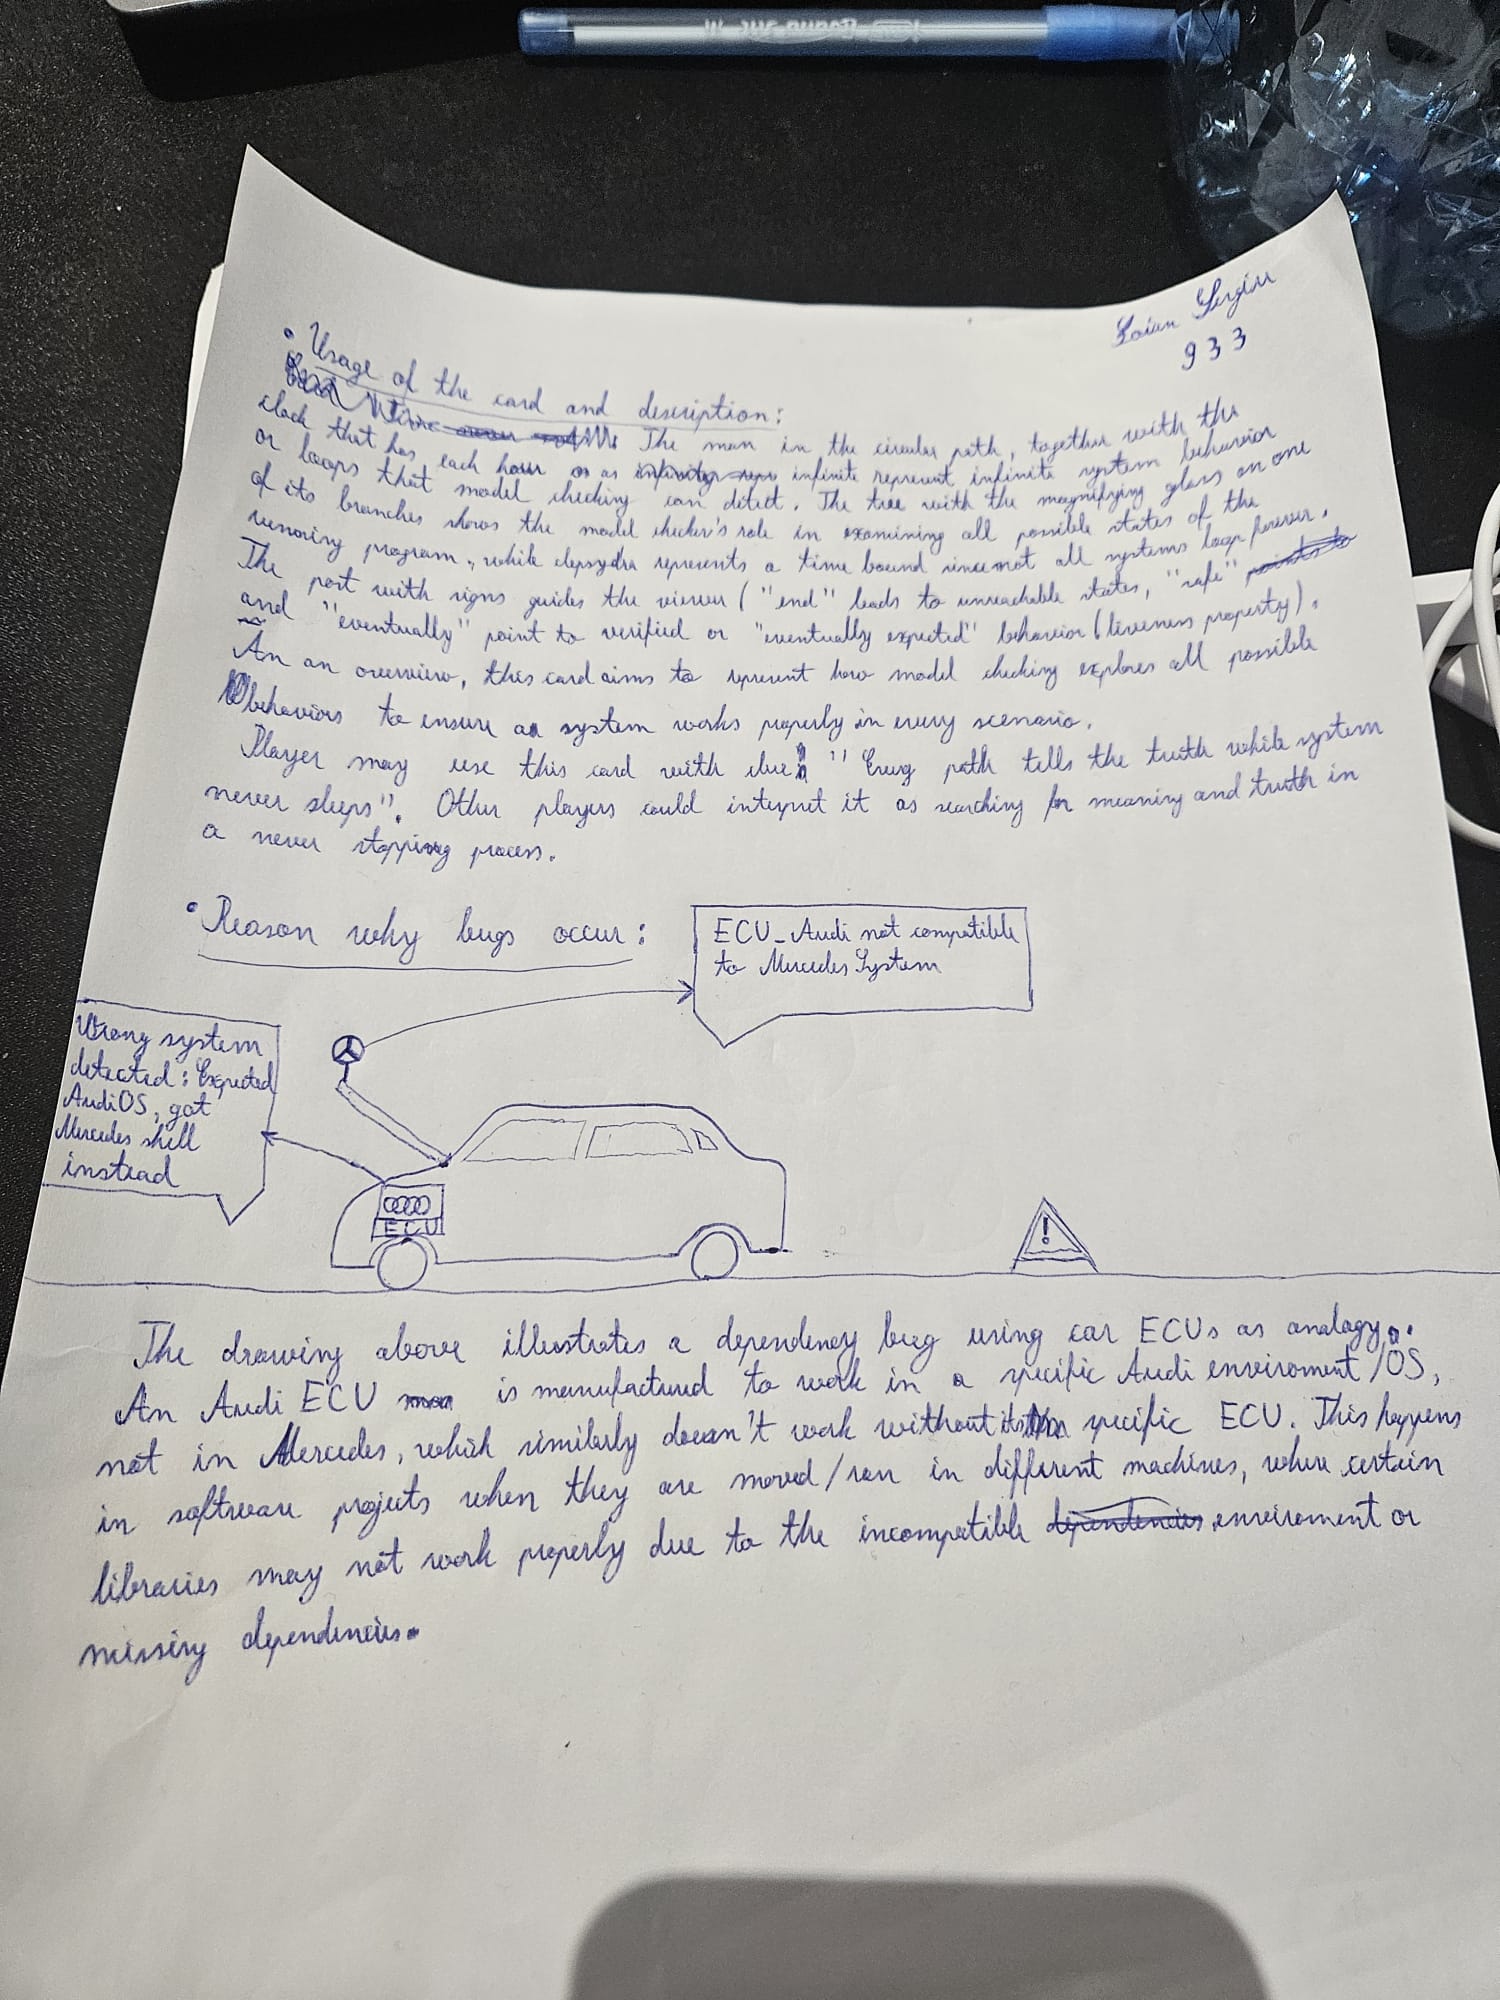 Sergiu
933
• Usage of the card and description:
The man in the circular path, together with the
clock that has each hour as infinite represent infinite system behavior
or loops that model checking can detect. The tree with the magnifying glass on one
of its branches shows the model checker's role in examining all possible states of the
running program, while clepsydra represents a time bound since not all systems loop forever.
The post with signs guides the viewer ("end" leads to unreachable states, "safe"
and "eventually" point to verified or "eventually expected" behavior (liveness property).
An an overview, this card aims to represent how model checking explores all possible
behaviors to ensure a system works properly in every scenario.
Player may use this card with clue: "Every path tells the truth while system
never sleeps". Other players could interpret it as searching for meaning and truth in
a never stopping process.
• Reason why bugs occur:
ECU_Audi not compatible
to Mercedes System
Wrong system
detected: Expected
AudiOS, got
Mercedes shell
instead
ECU
!
The drawing above illustrates a dependency bug using car ECUs as analogy.
An Audi ECU is manufactured to work in a specific Audi enviroment/OS,
not in Mercedes, which similarly doesn't work without its specific ECU. This happens
in software projects when they are moved/ran in different machines, where certain
libraries may not work properly due to the incompatible enviroment or
missing dependencies.